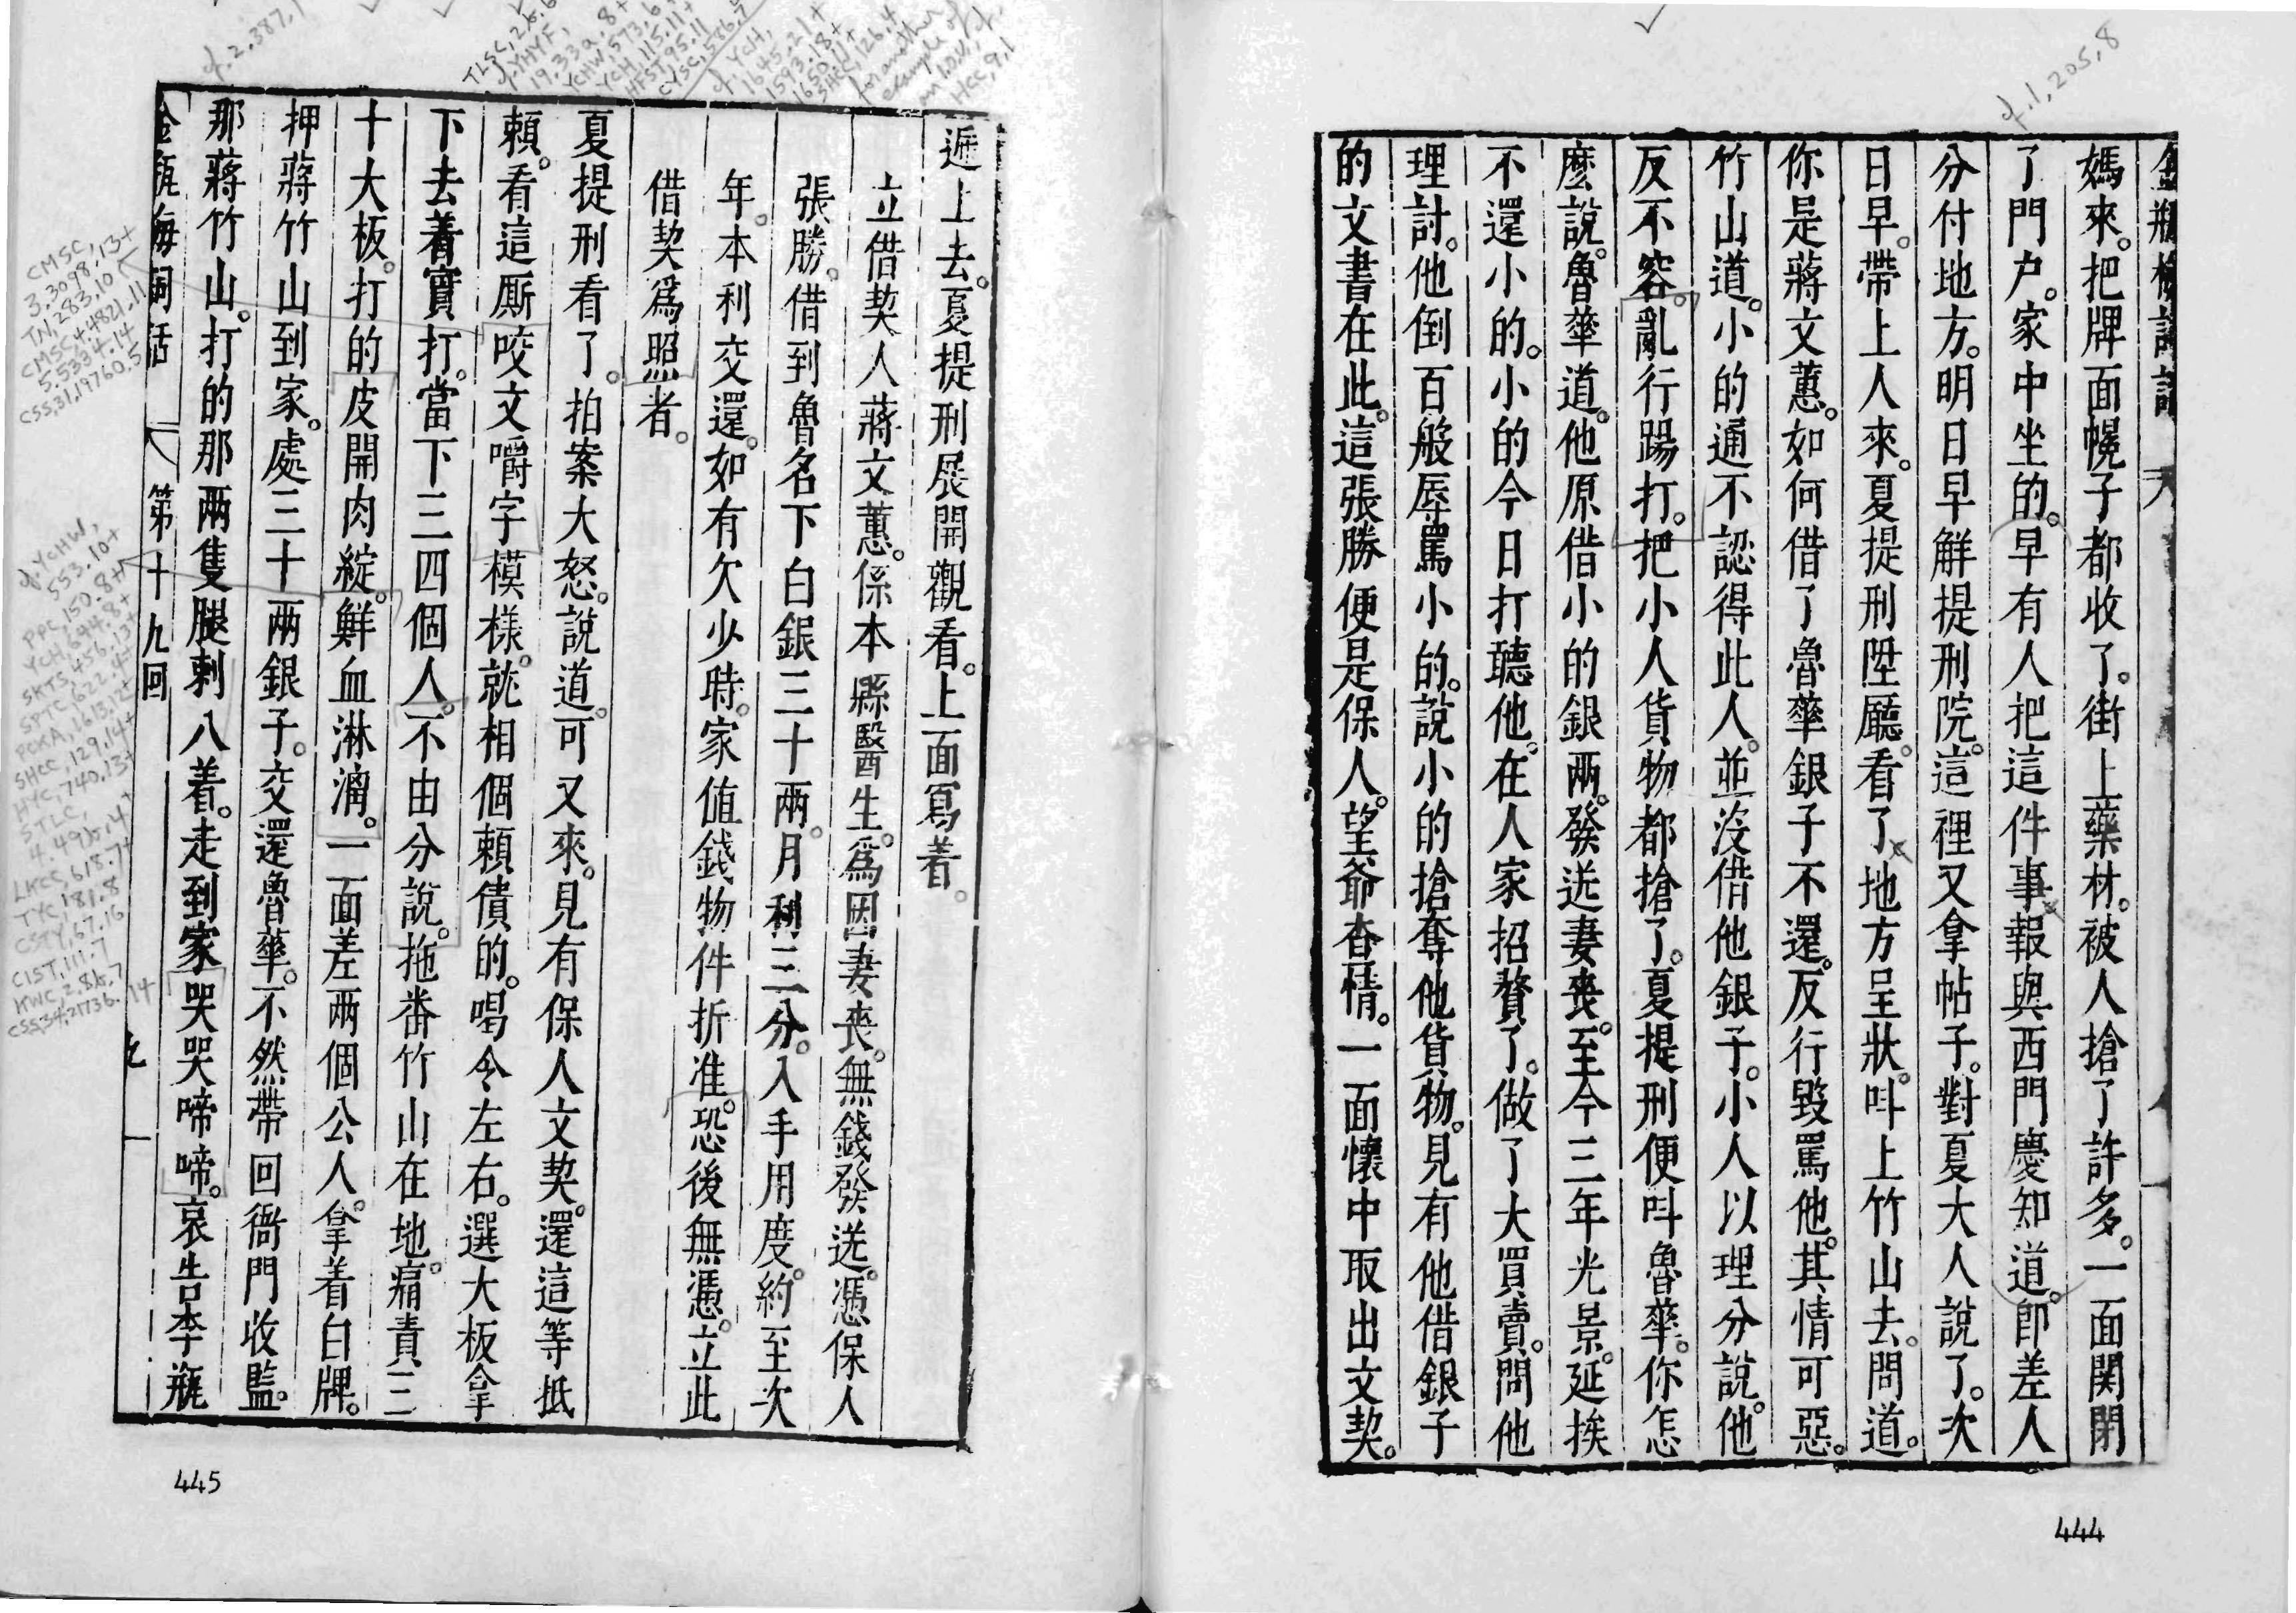 金瓶梅詞話
媽來。把牌面幌子都收了。街上藥材。被人搶了許多。一面関閉
了門户。家中坐的。早有人把這件事報與西門慶知道。即差人
分付地方。明日早解提刑院。這裡又拿帖子。對夏大人說了。次
日早。帶上人來。夏提刑陞廳。看了地方呈狀。呌上竹山去。問道。
你是蔣文蕙。如何借了魯華銀子不還。反行毀罵他。其情可惡。
竹山道。小的通不認得此人。並沒借他銀子。小人以理分說。他
反不容。亂行踢打。把小人貨物都搶了。夏提刑便呌魯華。你怎
麽說。魯華道。他原借小的銀兩。發送妻喪。至今三年光景。延挨
不還小的。小的今日打聽他。在人家招贅了。做了大買賣。問他
理討。他倒百般辱罵小的。說小的搶奪他貨物。見有他借銀子
的文書在此。這張勝便是保人。望爺查情。一面懷中取出文契。
444
cf. 1, 205, 8
遞上去。夏提刑展開觀看。上面寫着。
立借契人蔣文蕙。係本縣醫生。爲因妻喪。無錢發送。憑保人
張勝。借到魯名下白銀三十兩。月利三分。入手用度。約至次
年。本利交還。如有欠少時。家值錢物件折准。恐後無憑。立此
借契爲照者。
夏提刑看了。拍案大怒。說道。可又來。見有保人文契。還這等抵
賴。看這厮咬文嚼字模樣。就相個賴債的。喝令左右。選大板拿
下去着實打。當下三四個人。不由分說。拖番竹山在地。痛責三
十大板。打的皮開肉綻。鮮血淋漓。一面差兩個公人。拿着白牌。
押蔣竹山到家。處三十兩銀子。交還魯華。不然帶回衙門收監。
那蔣竹山。打的那兩隻腿剌八着。走到家哭哭啼啼。哀告李瓶
金瓶梅詞話 第十九回 九
445
cf. 2, 387, 1
CMSC, 13+
3, 3098, 10
TN, 283, 10
CMSC 4, 4821, 11
5, 5534, 14
CSS, 31, 19760, 5
cf. YCHW,
553, 10+
PPC, 150, 8+
YCH, 644, 8+
SKTS, 456, 13+
SPTC, 622, 4+
POKA, 1613, 12+
SHCC, 129, 14+
HYC, 740, 13+
STLC,
LKCS, 618, 7+
TYC, 181, 8
CSTY, 67, 16
CIST, 111, 7
CSS, 34, 21736, 14